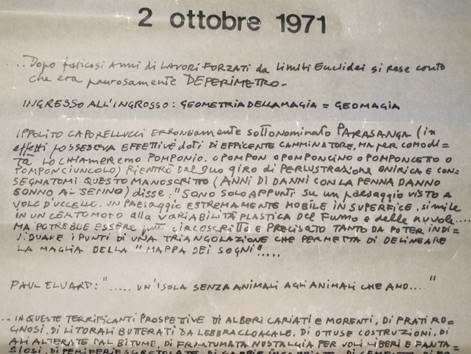 2 ottobre 1971
... Dopo faticosi anni di LAVORI FORZATI da limiti Euclidei si rese conto
che era paurosamente DEPERIMETRO.
INGRESSO ALL'INGROSSO: GEOMETRIA DELLA MAGIA = GEOMAGIA
IPPOLITO CAPORELLUCCI ERRONEAMENTE SOTTONOMINATO PARASANGA (in
effetti possedeva effettive doti di efficente camminatore, ma per comodi=
tà lo chiameremo POMPONIO. O POMPON O POMPONCINO O POMPONCETO O
POMPONCIUNCOLO) RIENTRÒ dal suo giro di PERLUSTRAZIONE ONIRICA E CON=
SEGNATOMI QUESTO MANOSCRITTO (ANNI DI DANNI CON LA PENNA DANNO
SONNO AL SENNO) disse: "SONO SOLO APPUNTI SU UN PAESAGGIO VISTO A
VOLO D'UCCELLO. UN PAESAGGIO ESTREMAMENTE MOBILE IN SUPERFICE, simile
IN UN CERTO MOTO alla VARIABILITÀ PLASTICA DEL FUMO E delle NUVOLE....
MA POTREBBE ESSERE CIRCOSCRITTO E PRECISATO TANTO DA POTER INDI=
VIDUARE I PUNTI DI UNA TRIANGOLAZIONE CHE PERMETTA DI DELINEARE
LA MAGLIA DELLA "MAPPA DEI SOGNI".....
PAUL ELUARD: "..... UN'ISOLA SENZA ANIMALI AGLI ANIMALI CHE AMO..."
... IN QUESTE TERRIFICANTI PROSPETIVE DI ALBERI CARIATI E MORENTI, DI PRATI RO=
GNOSI, DI LITORALI BUTTERATI DA LEBBRA CLOACALE, DI OTTUSE COSTRUZIONI, DI
ALI ALTERATE DAL BITUME, DI FRANTUMATA NOSTALGIA PER VOLI LIBERI E FANTA=
SIOSI, DI PERIFERIE